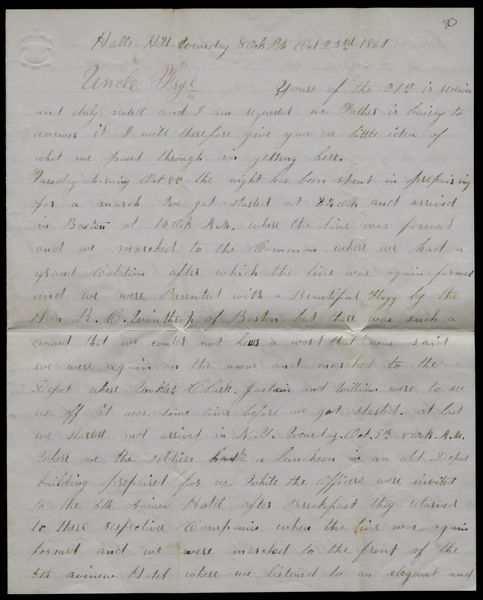 80
Halls Hill Wensday 8 Ock PM Oct 23rd 1861
Uncle Frye
Yours of the 21st is recieved
and duly noted and I am requested as Father is buisy to
answer it I will therefore give you a little idea of
what we passed through in getting here.
Tuesday morning Oct 8th the night had been spent in prepairing
for a march We got started at 8 Ock and arrived
in Boston at 10 Ock A.M. where the line was formed
and we marched to the Common where we had a
grand Colation after which the line was again formed
and we were Presented with a Beautifull Flagg by the
Hon R. C. Winthrop of Boston but there was such a
crowd that we could not hear a word that was said
we were again on the move and marched to the
Depot where Unkles Clark, and William were to see
us off it was some time before we got started. at last
we started and arrived in N.Y. Wensday Oct. 9th 8 ock A.M.
Where we the soldiers had a luncheon in an old Depot
building prepared for us While the Officers were invited
to the 5th Avenue Hotel after Breakfast they returned
to there respective Companies when the line was again
formed and we were marched to the front of the
5th avineu Hotel where we listened to an elegant and